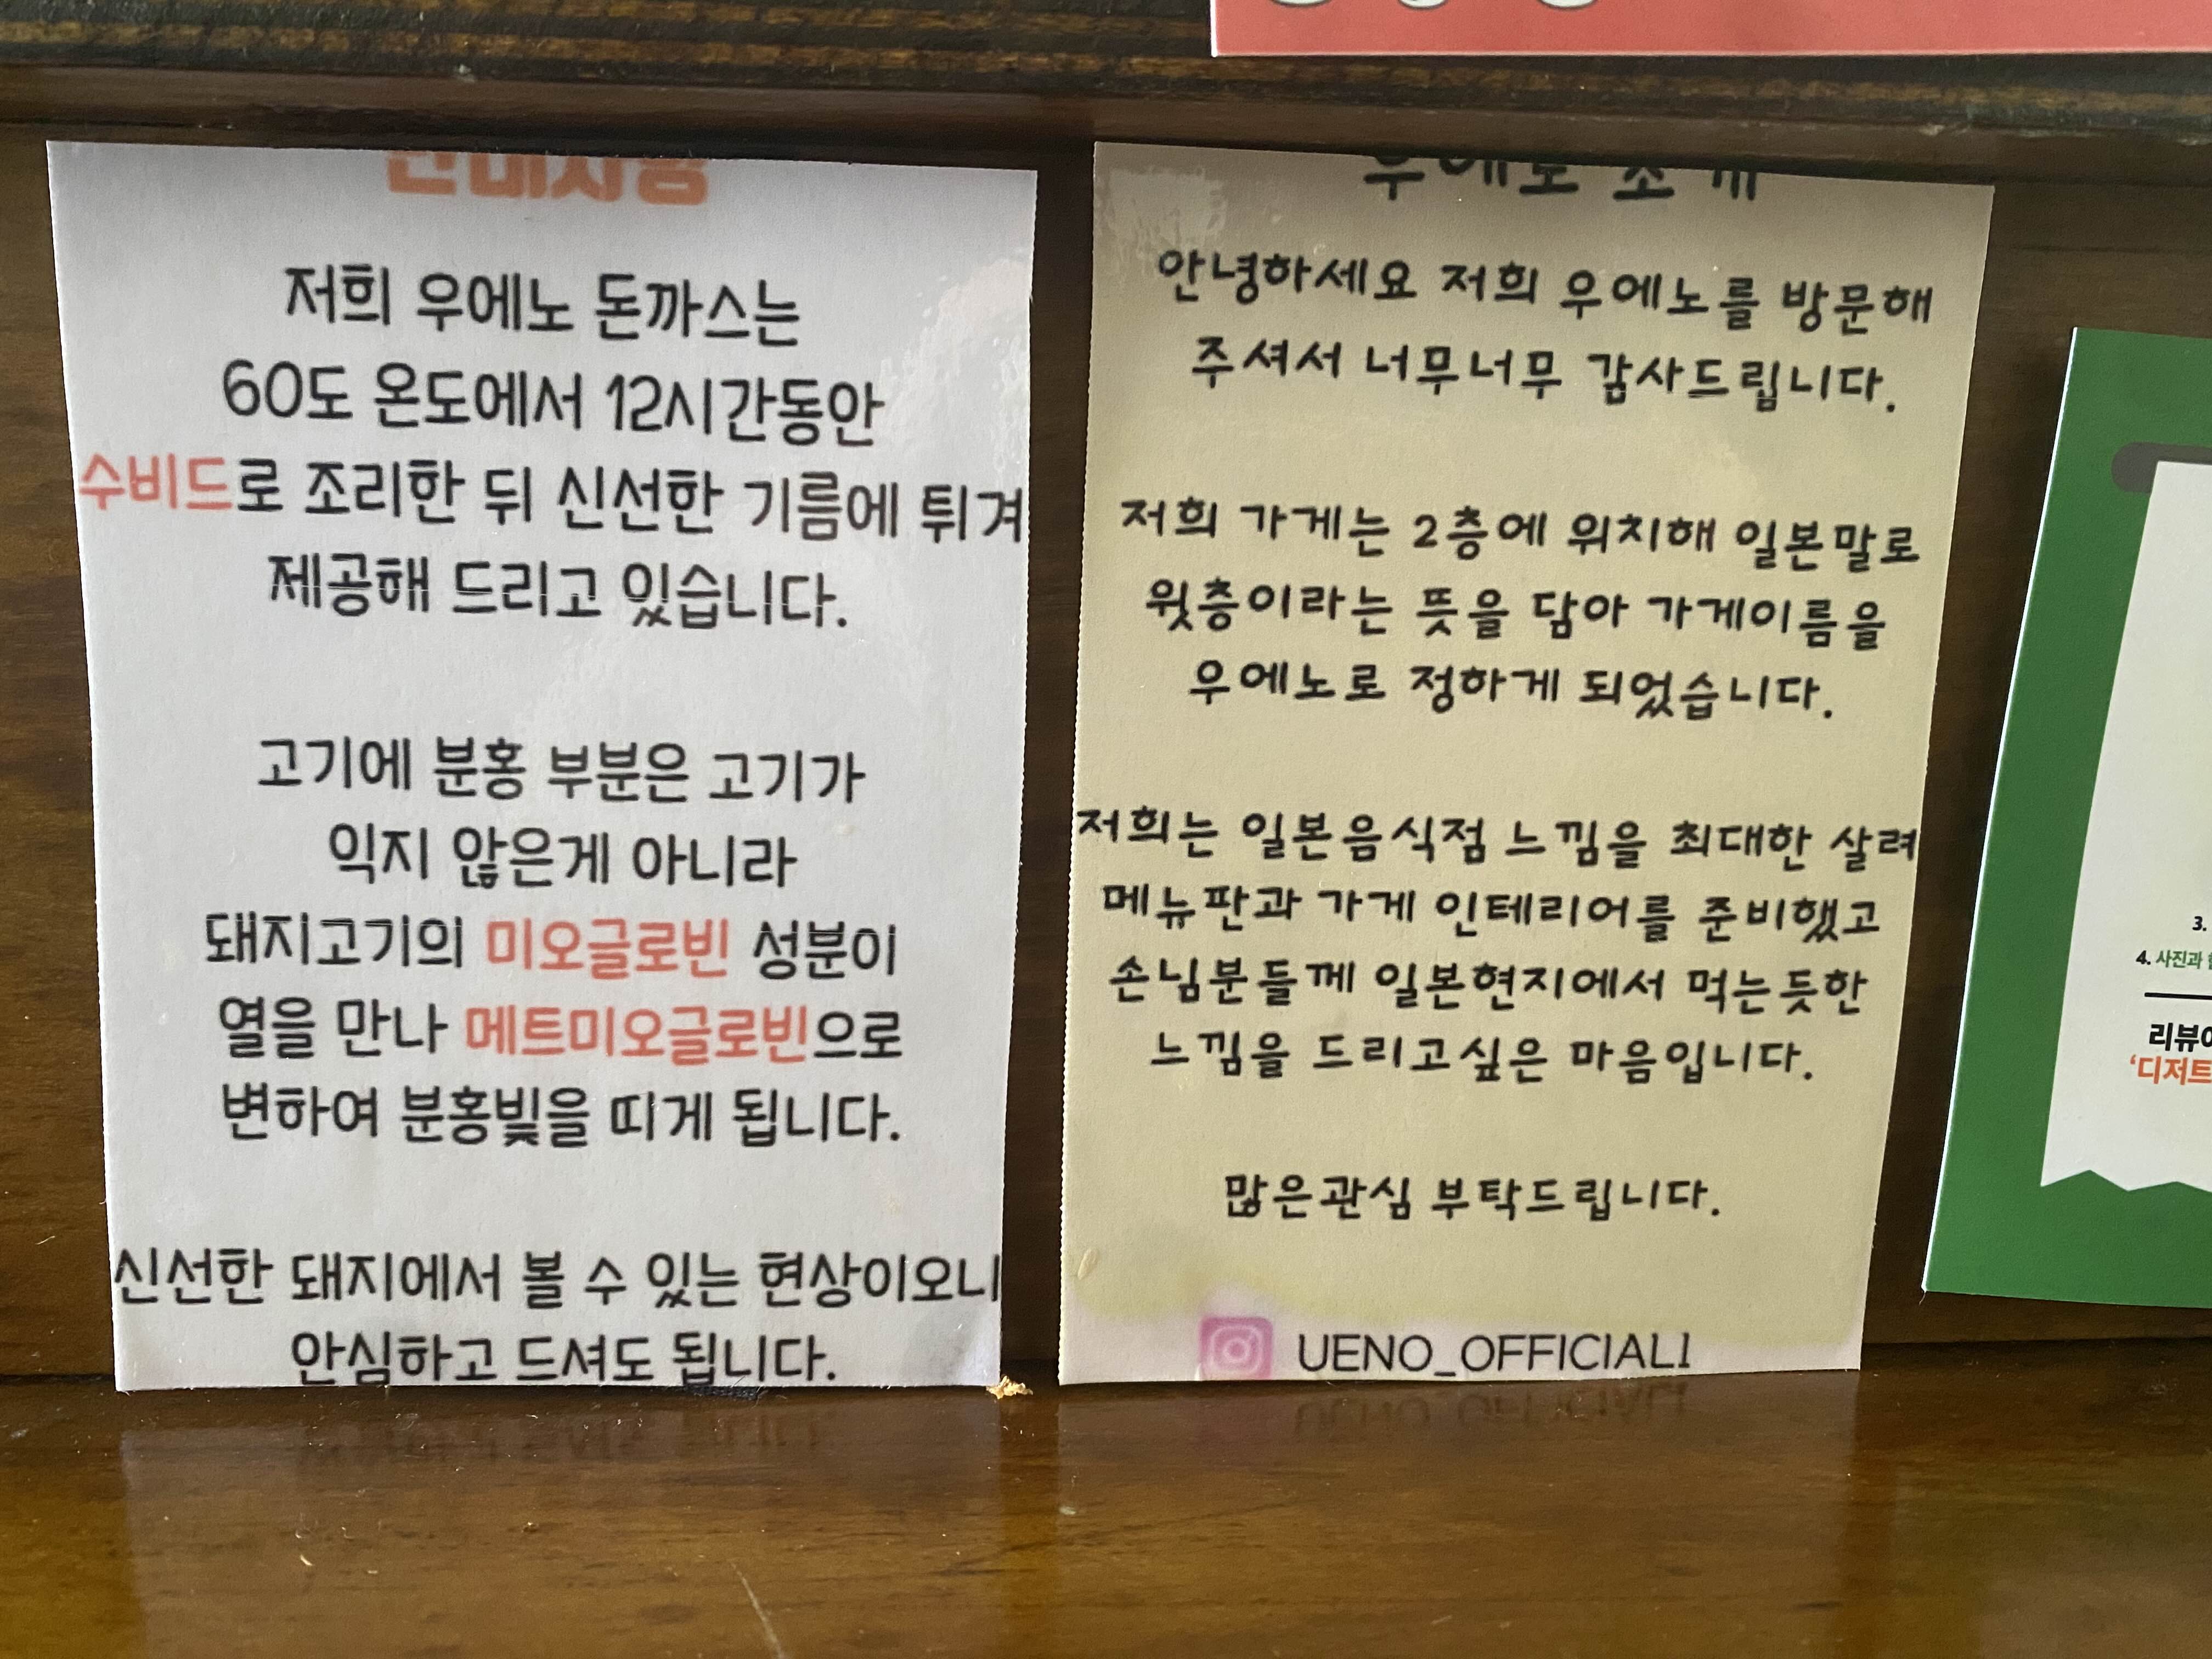 저희 우에노 돈까스는
60도 온도에서 12시간동안
수비드로 조리한 뒤 신선한 기름에 튀겨
제공해 드리고 있습니다.
고기에 분홍 부분은 고기가
익지 않은게 아니라
돼지고기의 미오글로빈 성분이
열을 만나 메트미오글로빈으로
변하여 분홍빛을 띠게 됩니다.
신선한 돼지에서 볼 수 있는 현상이오니
안심하고 드셔도 됩니다.
우에노 소개
안녕하세요 저희 우에노를 방문해
주셔서 너무너무 감사드립니다.
저희 가게는 2층에 위치해 일본말로
윗층이라는 뜻을 담아 가게이름을
우에노로 정하게 되었습니다.
저희는 일본음식점 느낌을 최대한 살려
메뉴판과 가게 인테리어를 준비했고
손님분들께 일본현지에서 먹는듯한
느낌을 드리고싶은 마음입니다.
많은관심 부탁드립니다.
UENO_OFFICIAL1
3.
4. 사진과
리뷰
'디저트